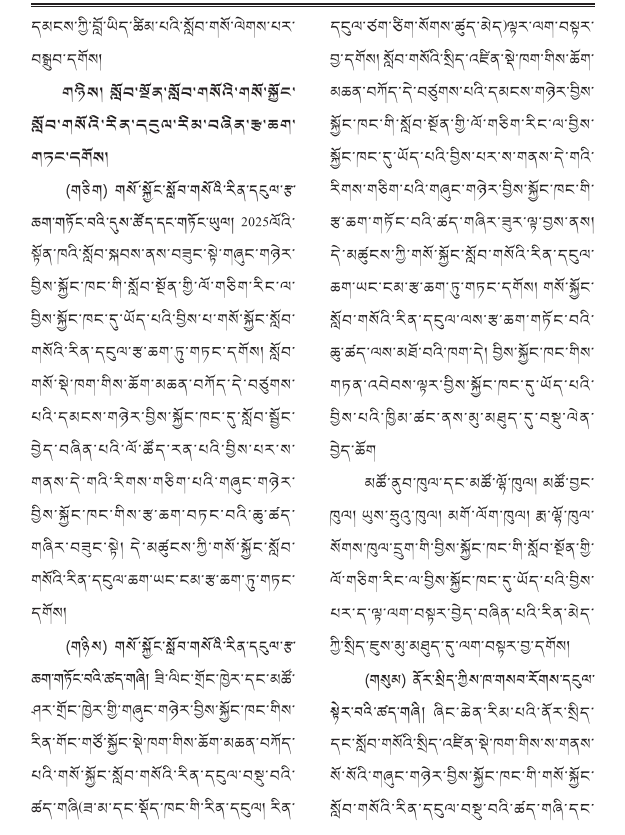 དམངས་ཀྱི་བློ་ཡིད་ཚིམ་པའི་སློབ་གསོ་ལེགས་པར་
བསྒྲུབ་དགོས།
གཉིས། སློབ་སྔོན་སློབ་གསོའི་གསོ་སྐྱོང་
སློབ་གསོའི་རིན་དངུལ་རིམ་བཞིན་རྩ་ཆག་
གཏང་དགོས།
(གཅིག) གསོ་སྐྱོང་སློབ་གསོའི་རིན་དངུལ་རྩ་
ཆག་གཏོང་བའི་དུས་ཚོད་དང་གཏོང་ཡུལ། 2025ལོའི་
སྟོན་ཁའི་སློབ་སྐབས་ནས་བཟུང་སྟེ་གཞུང་གཉེར་
བྱིས་སྐྱོང་ཁང་གི་སློབ་སྔོན་གྱི་ལོ་གཅིག་རིང་ལ་
བྱིས་སྐྱོང་ཁང་དུ་ཡོད་པའི་བྱིས་པ་གསོ་སྐྱོང་སློབ་
གསོའི་རིན་དངུལ་རྩ་ཆག་ཏུ་གཏང་དགོས། སློབ་
གསོ་སྡེ་ཁག་གིས་ཆོག་མཆན་བཀོད་དེ་བཙུགས་
པའི་དམངས་གཉེར་བྱིས་སྐྱོང་ཁང་དུ་སློབ་སྦྱོང་
བྱེད་བཞིན་པའི་ལོ་ཚོད་རན་པའི་བྱིས་པར་ས་
གནས་དེ་གའི་རིགས་གཅིག་པའི་གཞུང་གཉེར་
བྱིས་སྐྱོང་ཁང་གིས་རྩ་ཆག་བཏང་བའི་ཆུ་ཚད་
གཞིར་བཟུང་སྟེ། དེ་མཚུངས་ཀྱི་གསོ་སྐྱོང་སློབ་
གསོའི་རིན་དངུལ་ཆག་ཡང་ངམ་རྩ་ཆག་ཏུ་གཏང་
དགོས།
(གཉིས) གསོ་སྐྱོང་སློབ་གསོའི་རིན་དངུལ་རྩ་
ཆག་གཏོང་བའི་ཚད་གཞི། ཟི་ལིང་གྲོང་ཁྱེར་དང་མཚོ་
ཤར་གྲོང་ཁྱེར་གྱི་གཞུང་གཉེར་བྱིས་སྐྱོང་ཁང་གིས་
རིན་གོང་གཙོ་སྐྱོང་སྡེ་ཁག་གིས་ཆོག་མཆན་བཀོད་
པའི་གསོ་སྐྱོང་སློབ་གསོའི་རིན་དངུལ་བསྡུ་བའི་
ཚད་གཞི(ཟ་མ་དང་སྡོད་ཁང་གི་རིན་དངུལ། རིན་
དངུལ་ཙག་ཙིག་སོགས་ཚུད་མེད)ལྟར་ལག་བསྟར་
བྱ་དགོས། སློབ་གསོའི་སྲིད་འཛིན་སྡེ་ཁག་གིས་ཆོག་
མཆན་བཀོད་དེ་བཙུགས་པའི་དམངས་གཉེར་བྱིས་
སྐྱོང་ཁང་གི་སློབ་སྔོན་གྱི་ལོ་གཅིག་རིང་ལ་བྱིས་
སྐྱོང་ཁང་དུ་ཡོད་པའི་བྱིས་པར་ས་གནས་དེ་གའི་
རིགས་གཅིག་པའི་གཞུང་གཉེར་བྱིས་སྐྱོང་ཁང་གི་
རྩ་ཆག་གཏོང་བའི་ཚད་གཞིར་ཟུར་ལྟ་བྱས་ནས།
དེ་མཚུངས་ཀྱི་གསོ་སྐྱོང་སློབ་གསོའི་རིན་དངུལ་
ཆག་ཡང་ངམ་རྩ་ཆག་ཏུ་གཏང་དགོས། གསོ་སྐྱོང་
སློབ་གསོའི་རིན་དངུལ་ལས་རྩ་ཆག་གཏོང་བའི་
ཆུ་ཚད་ལས་མཐོ་བའི་ཁག་དེ། བྱིས་སྐྱོང་ཁང་གིས་
གཏན་འབེབས་ལྟར་བྱིས་སྐྱོང་ཁང་དུ་ཡོད་པའི་
བྱིས་པའི་ཁྱིམ་ཚང་ནས་མུ་མཐུད་དུ་བསྡུ་ལེན་
བྱེད་ཆོག
མཚོ་ནུབ་ཁུལ་དང་མཚོ་ལྷོ་ཁུལ། མཚོ་བྱང་
ཁུལ། ཡུས་ཧྲུའུ་ཁུལ། མགོ་ལོག་ཁུལ། རྨ་ལྷོ་ཁུལ་
སོགས་ཁུལ་དྲུག་གི་བྱིས་སྐྱོང་ཁང་གི་སློབ་སྔོན་གྱི་
ལོ་གཅིག་རིང་ལ་བྱིས་སྐྱོང་ཁང་དུ་ཡོད་པའི་བྱིས་
པར་ད་ལྟ་ལག་བསྟར་བྱེད་བཞིན་པའི་རིན་མེད་
ཀྱི་སྲིད་ཇུས་མུ་མཐུད་དུ་ལག་བསྟར་བྱ་དགོས།
(གསུམ) ནོར་སྲིད་ཀྱིས་ཁ་གསབ་རོགས་དངུལ་
སྟེར་བའི་ཚད་གཞི། ཞིང་ཆེན་རིམ་པའི་ནོར་སྲིད་
དང་སློབ་གསོའི་སྲིད་འཛིན་སྡེ་ཁག་གིས་ས་གནས་
སོ་སོའི་གཞུང་གཉེར་བྱིས་སྐྱོང་ཁང་གི་གསོ་སྐྱོང་
སློབ་གསོའི་རིན་དངུལ་བསྡུ་བའི་ཚད་གཞི་དང་